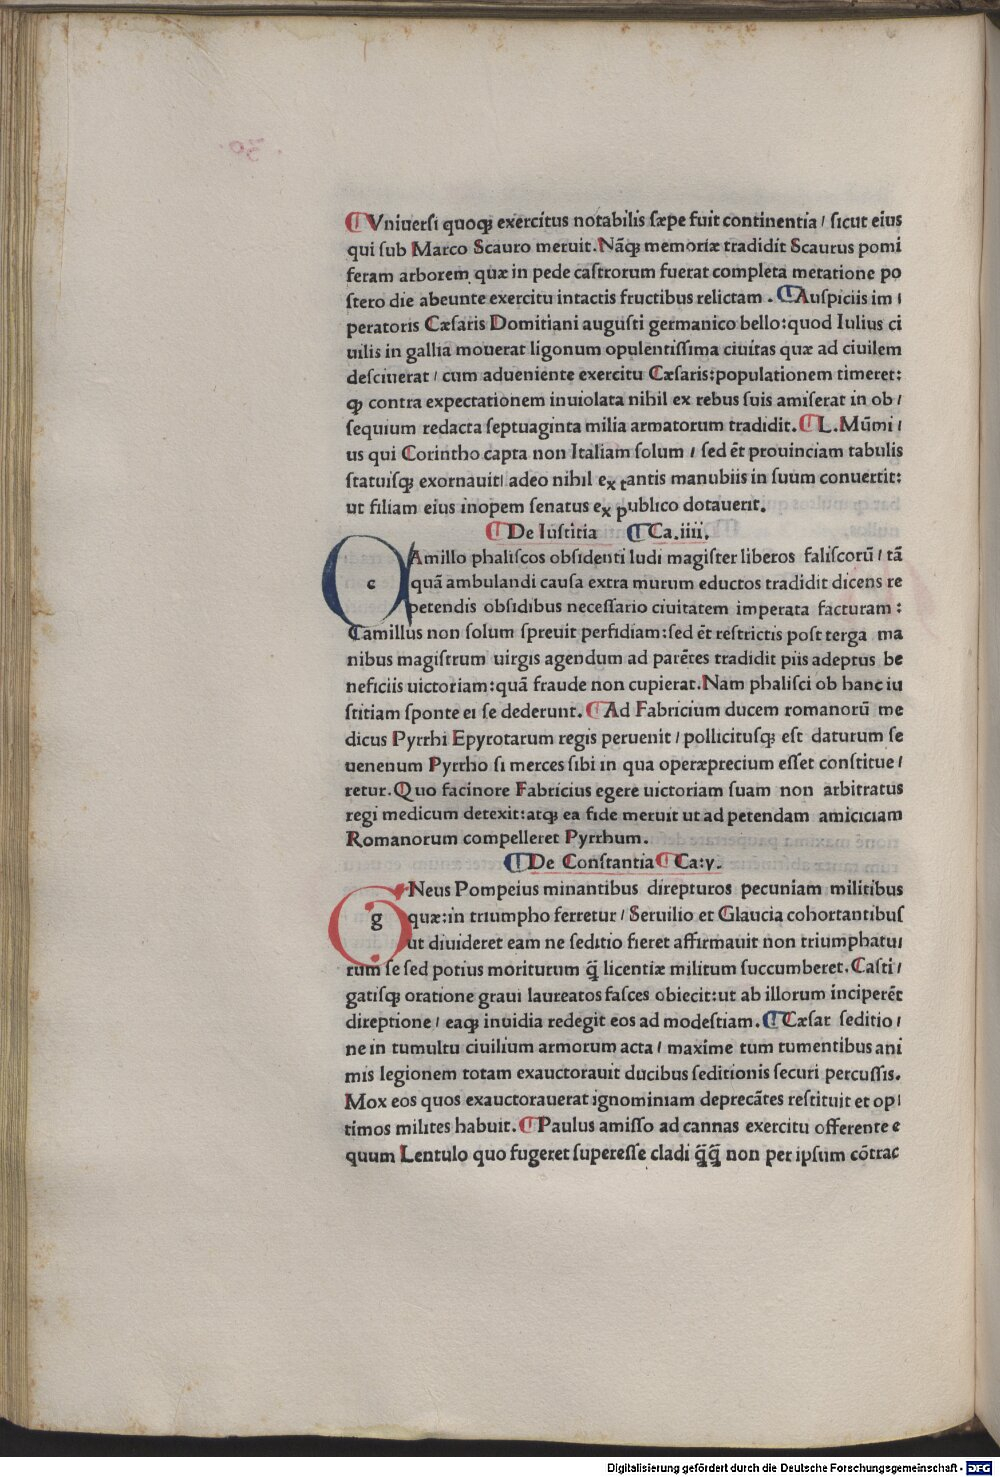 ¶Vniuersi quoqꝫ exercitus notabilis sæpe fuit continentia / sicut eius
qui sub Marco Scauro meruit.Nãqꝫ memoriæ tradidit Scaurus pomi
feram arborem quæ in pede castrorum fuerat completa metatione po
stero die abeunte exercitu intactis fructibus relictam . ¶Auspiciis im /
peratoris Cæsaris Domitiani augusti germanico bello:quod Iulius ci
uilis in gallia mouerat ligonum opulentissima ciuitas quæ ad ciuilem
desciuerat / cum adueniente exercitu Cæsaris:populationem timeret:
ꝙ contra expectationem inuiolata nihil ex rebus suis amiserat in ob /
sequium redacta septuaginta milia armatorum tradidit. ¶L.Mũmi /
us qui Corintho capta non Italiam solum / sed ẽt prouinciam tabulis
statuisqꝫ exornauit/ adeo nihil ex tantis manubiis in suum conuertit:
ut filiam eius inopem senatus ex publico dotauerit.
¶De Iustitia ¶Ca.iiii.
c Amillo phaliscos obsidenti ludi magister liberos faliscorũ / tã
quã ambulandi causa extra murum eductos tradidit dicens re
petendis obsidibus necessario ciuitatem imperata facturam :
Camillus non solum spreuit perfidiam:sed ẽt restrictis post terga ma
nibus magistrum uirgis agendum ad parẽtes tradidit piis adeptus be
neficiis uictoriam:quã fraude non cupierat.Nam phalisci ob hanc iu
stitiam sponte ei se dederunt. ¶Ad Fabricium ducem romanorũ me
dicus Pyrrhi Epyrotarum regis peruenit / pollicitusqꝫ est daturum se
uenenum Pyrrho si merces sibi in qua operæprecium esset constitue /
retur.Quo facinore Fabricius egere uictoriam suam non arbitratus
regi medicum detexit:atqꝫ ea fide meruit ut ad petendam amiciciam
Romanorum compelleret Pyrrhum.
¶De Constantia ¶Ca:v.
g Neus Pompeius minantibus direpturos pecuniam militibus
quæ:in triumpho ferretur / Seruilio et Glaucia cohortantibus
ut diuideret eam ne seditio fieret affirmauit non triumphatu/
rum se sed potius moriturum q̃ licentiæ militum succumberet.Casti /
gatisqꝫ oratione graui laureatos fasces obiecit:ut ab illorum inciperẽt
direptione / eaqꝫ inuidia redegit eos ad modestiam. ¶Cæsar seditio /
ne in tumultu ciuilium armorum acta / maxime tum tumentibus ani
mis legionem totam exauctorauit ducibus seditionis securi percussis.
Mox eos quos exauctorauerat ignominiam deprecãtes restituit et op/
timos milites habuit. ¶Paulus amisso ad cannas exercitu offerente e
quum Lentulo quo fugeret superesse cladi q̃q̃ non per ipsum cõtrac
Digitalisierung gefördert durch die Deutsche Forschungsgemeinschaft - DFG